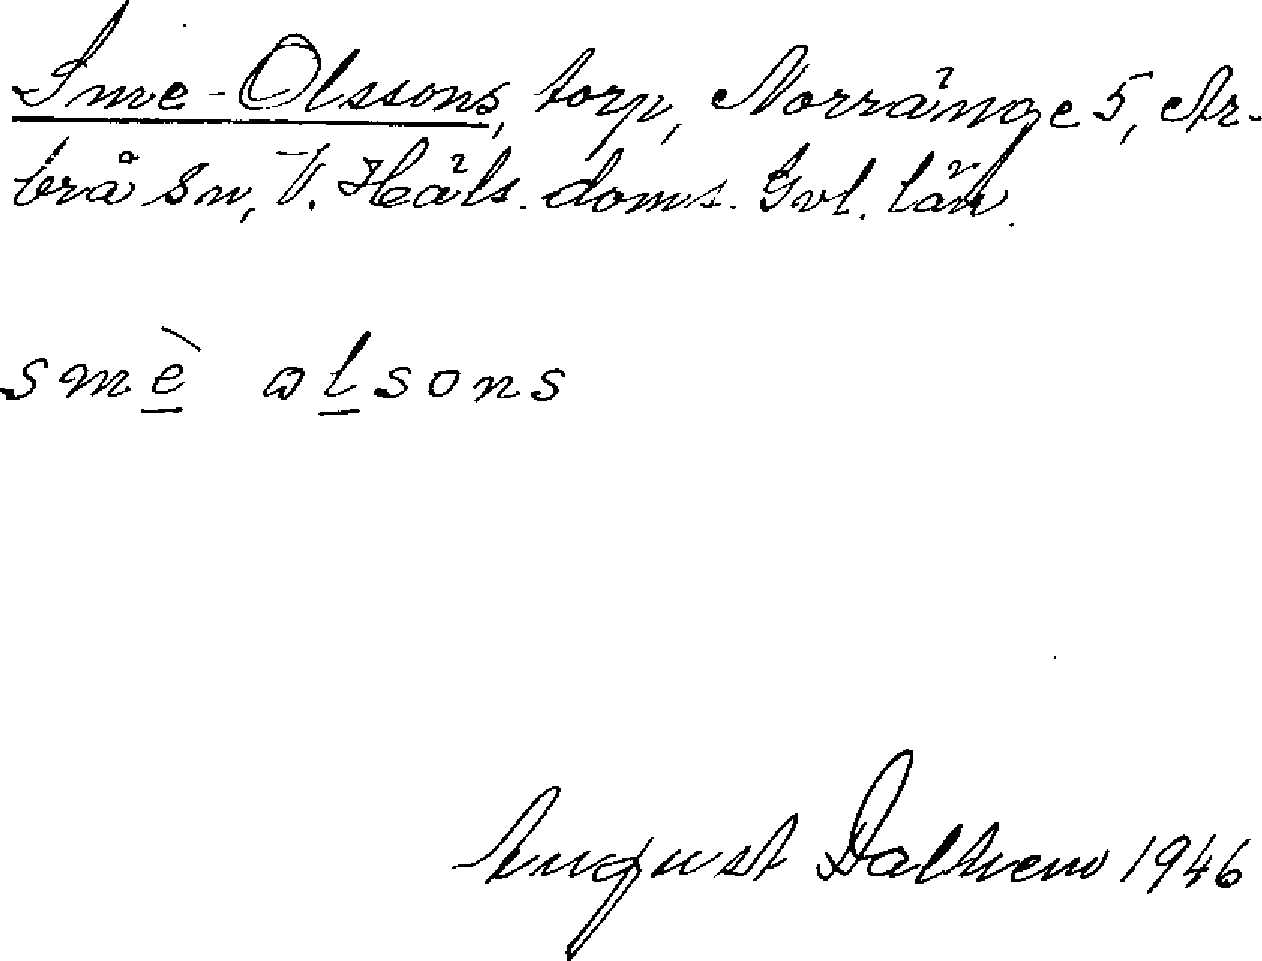 Sme-Olssons, torp, Norränge 5, Ar-
brå sn, V. Häls. doms. Gvl. län.
smè olsons
August Dalhem 1946